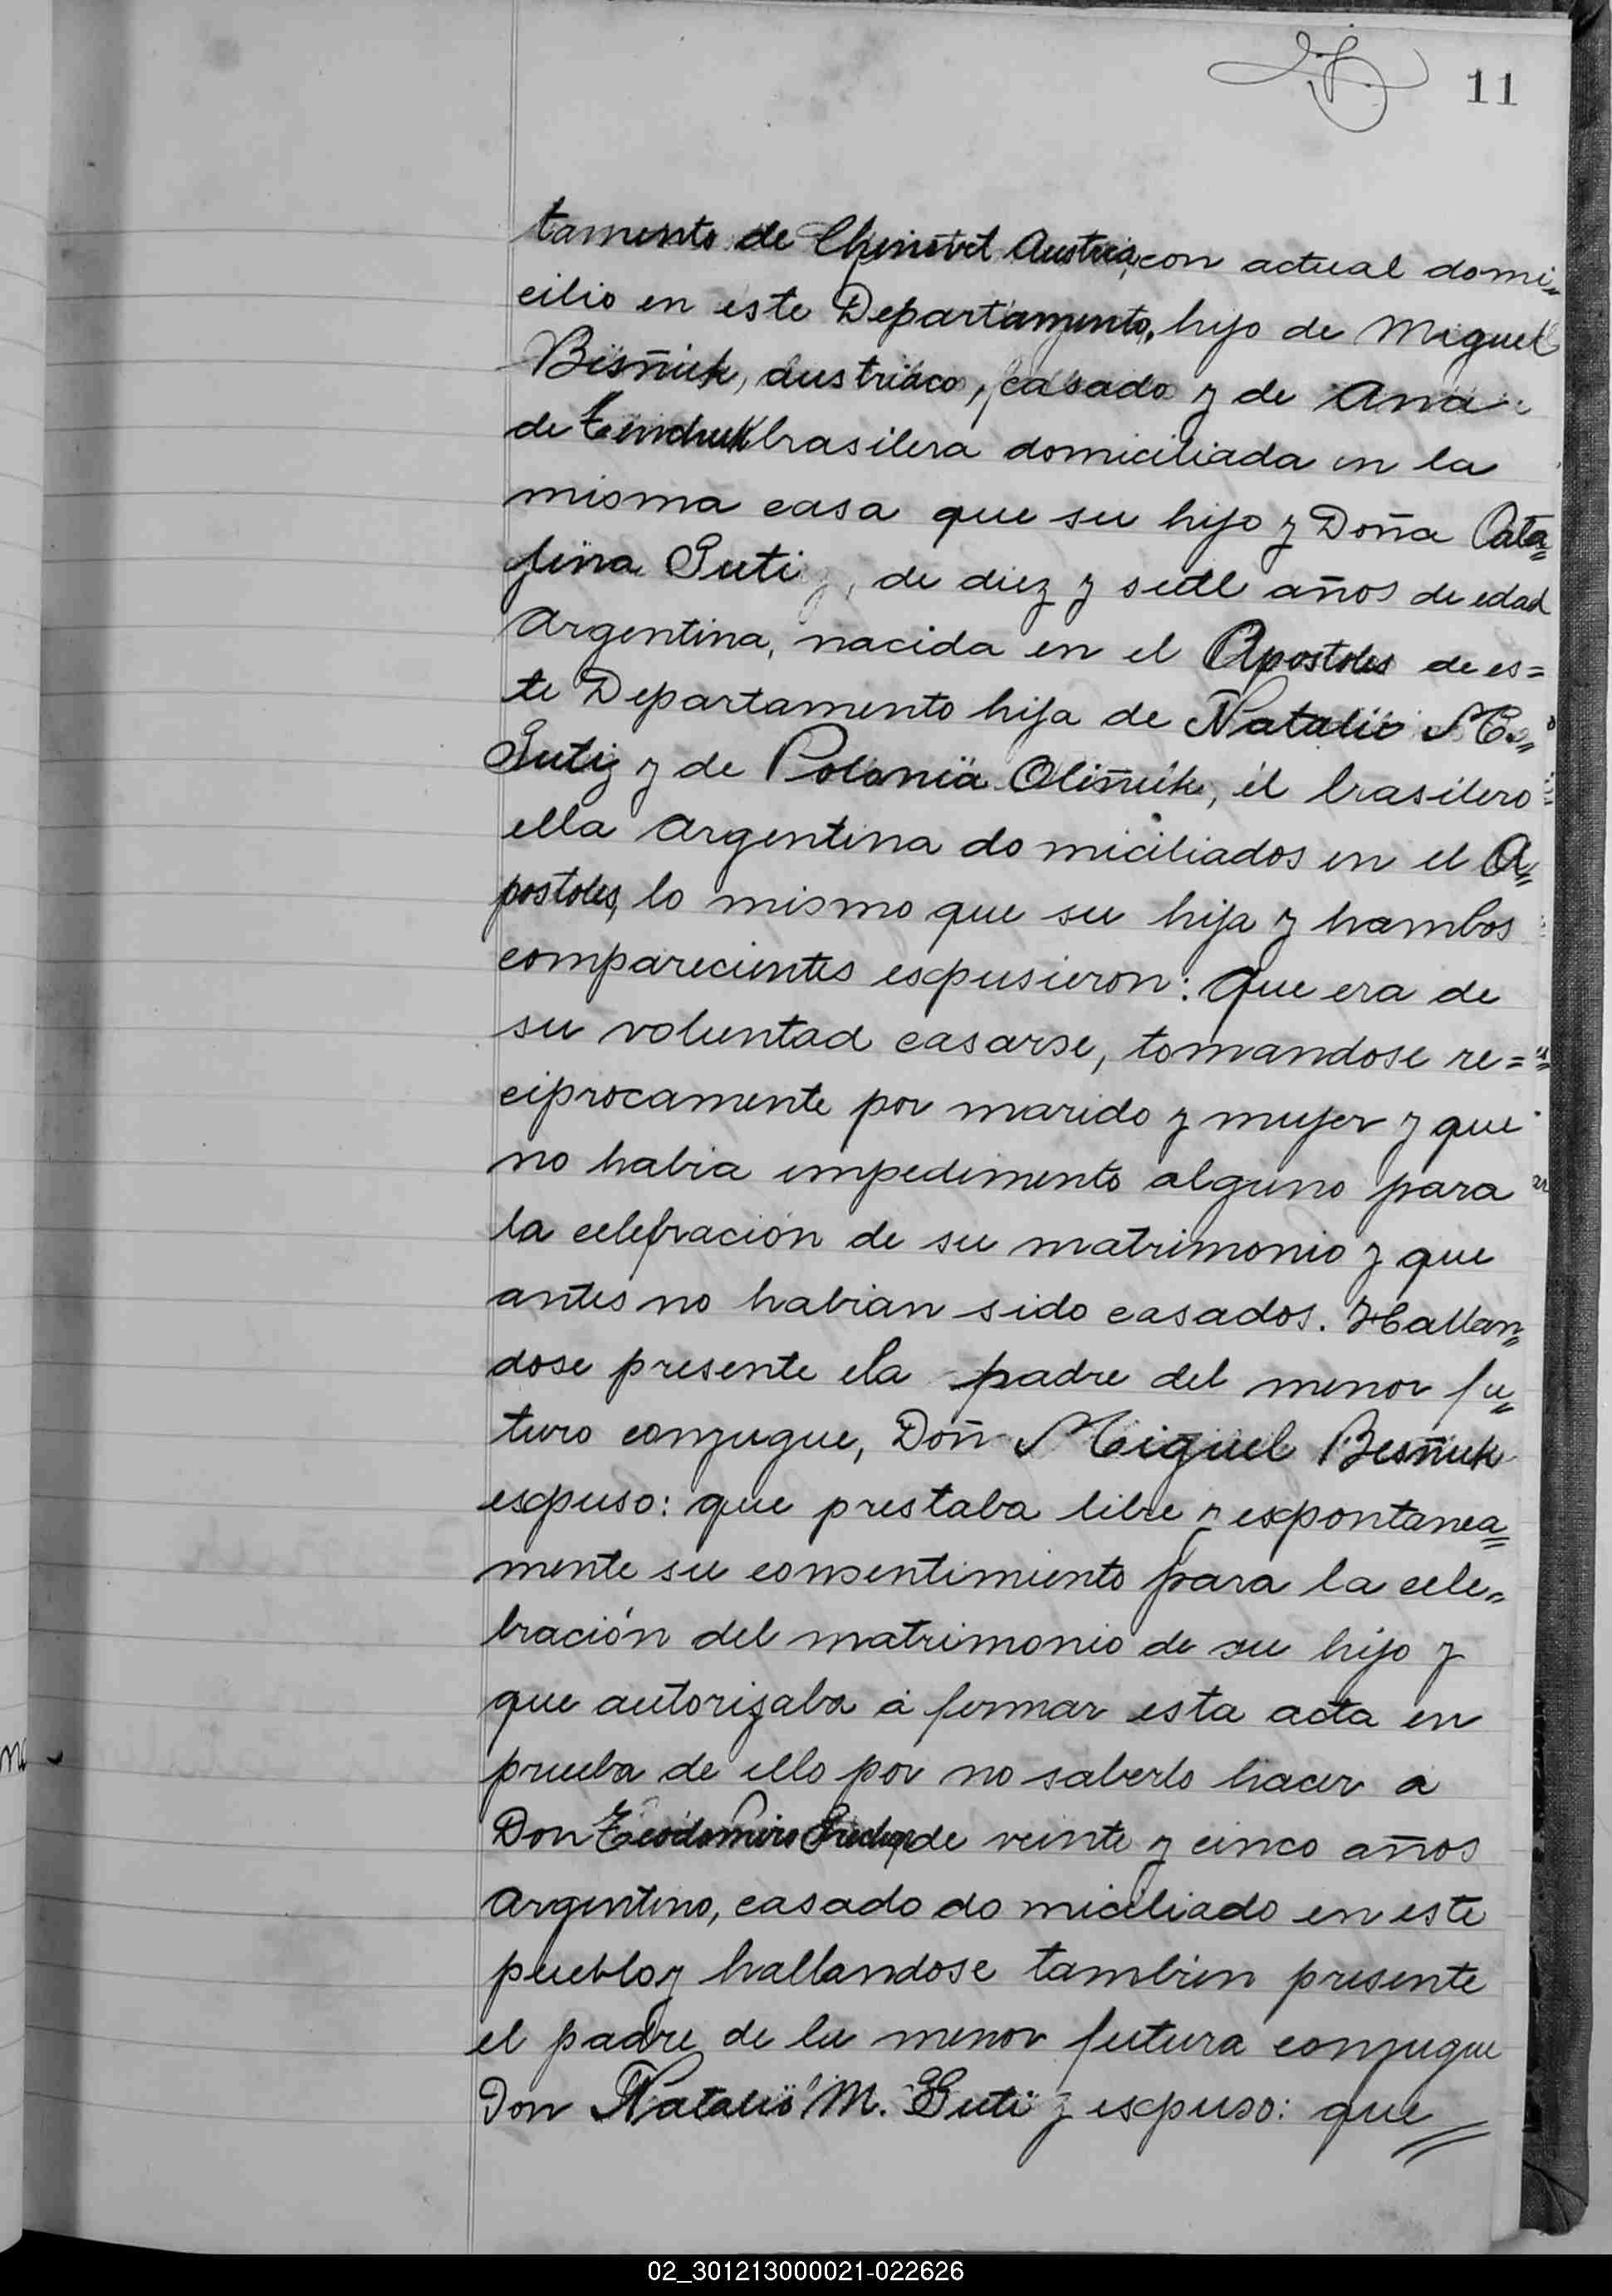 11
tamento de Austria, con actual domi=
cilio en este Departamento, hijo de Miguel
Bisñuk, austriaco, casado y de Ana
de brasilera domiciliada en la
misma casa que su hijo y Doña Cata=
lina Guti, de diez y siete años de edad
Argentina, nacida en el Apostoles de es=
te Departamento hija de Natalio M.
Guti y de Polonia Oliñuik, él brasilero
ella Argentina domiciliados en el A=
postoles, lo mismo que su hija y hambos
comparecientes expusieron: Que era de
su voluntad casarse, tomandose re=
ciprocamente por marido y mujer y que
no habia impedimento alguno para
la celebración de su matrimonio y que
antes no habian sido casados. Hallan=
dose presente ela padre del menor fu=
turo conyugue, Don Miguel Besñuk
expuso: que prestaba libre y espontanea=
mente su consentimiento para la cele=
bración del matrimonio de su hijo y
que autorizaba á firmar esta acta en
prueba de ello por no saberlo hacer a
Don Teodomiro de veinte y cinco años
Argentino, casado domiciliado en este
pueblo y hallandose tambien presente
el padre de la menor futura conyugue
Don Natalio M. Guti y expuso: que
02_301213000021-022626